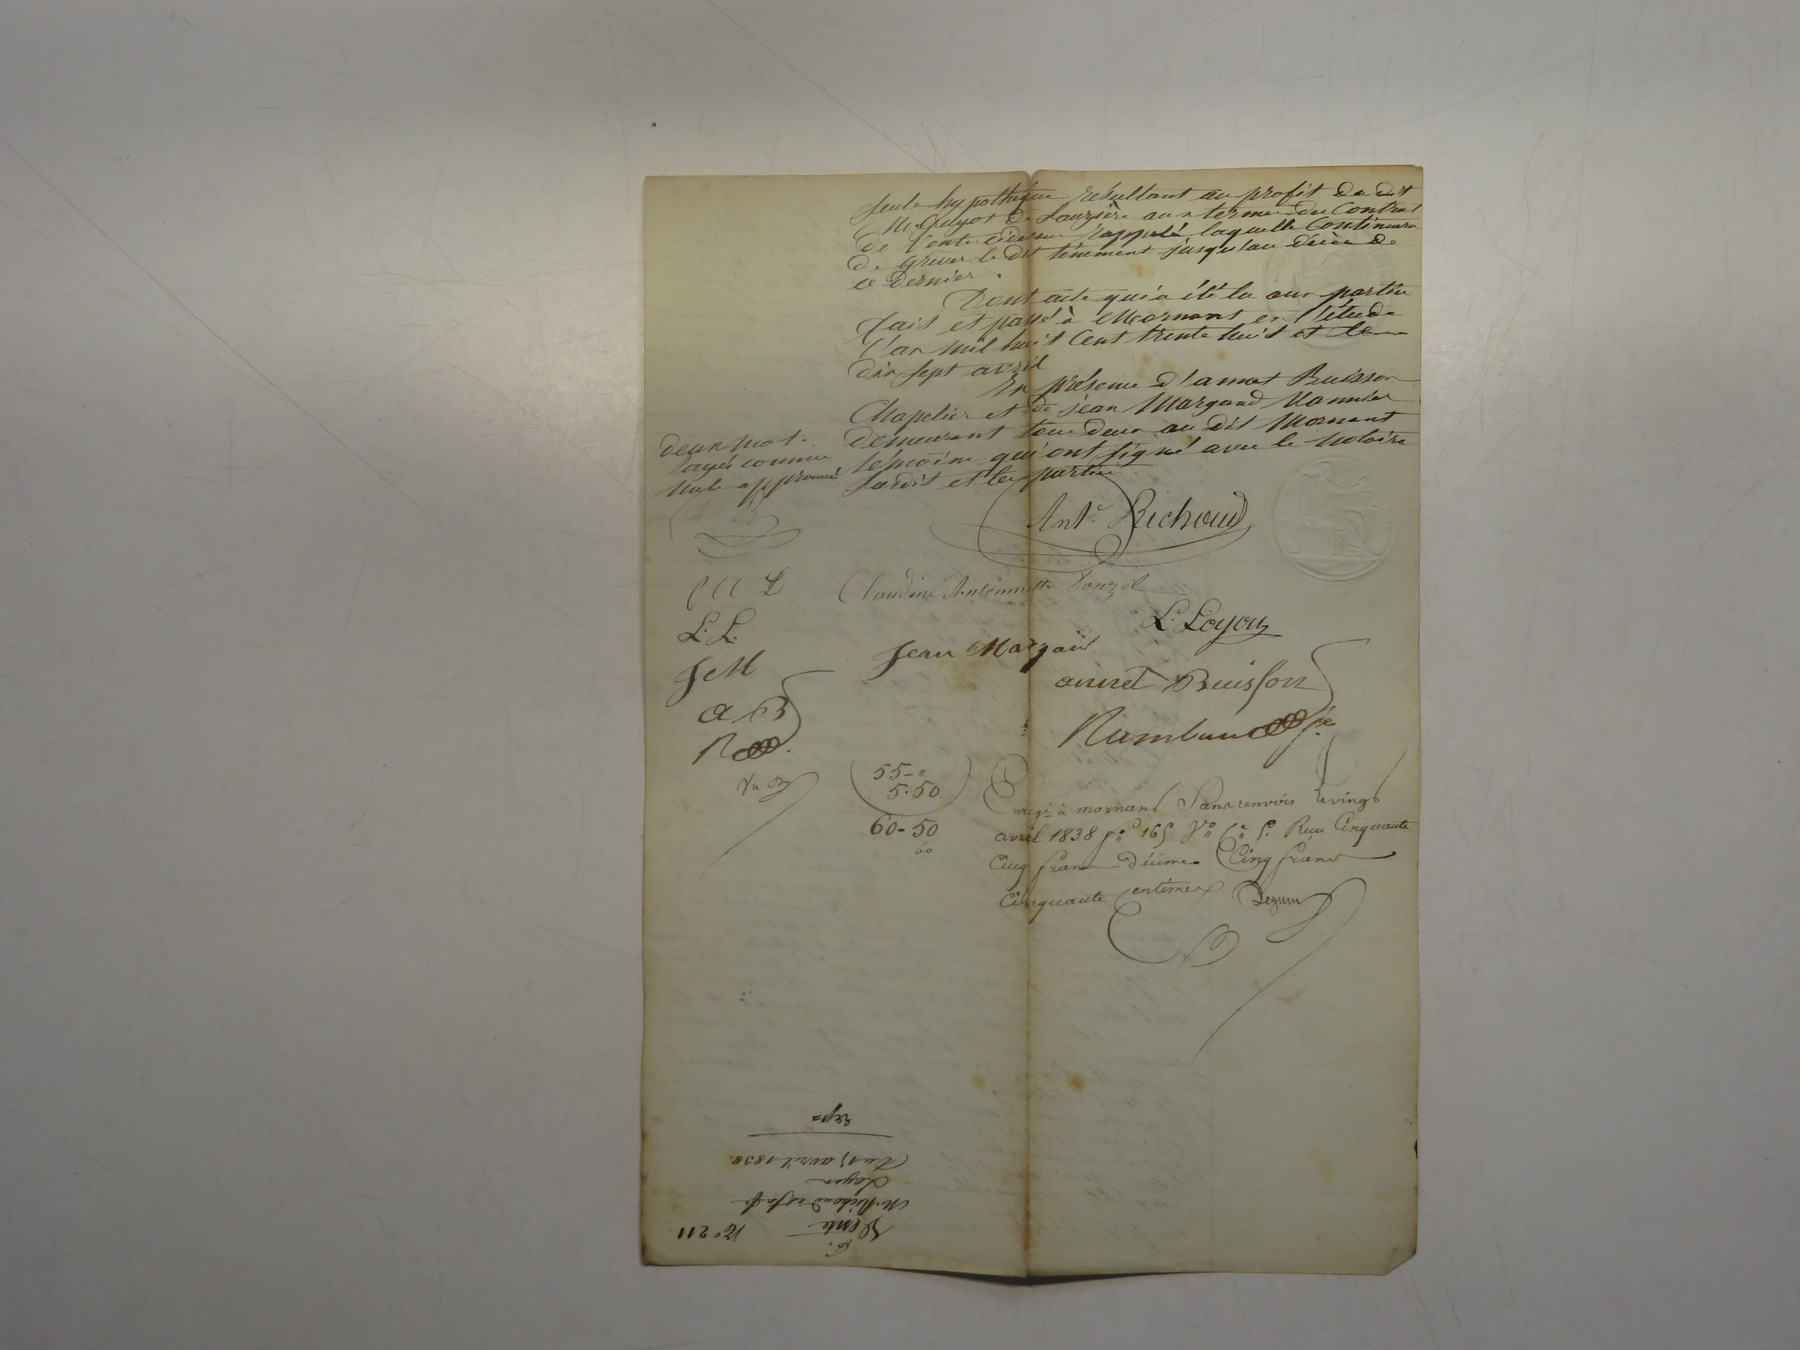 seule hypothèque résultant au profit du dit
M. Guyot de Lauzière aux termes du Contrat
de Vente cidessus rappelé laquelle Continuera
de grever le dit tènement jusqu'au décès de
ce dernier.
Dont acte qui a été lu aux parties
fait et passé à Mornant en l'étude
l'an mil huit Cent trente huit et le
dix sept avril
En présence d'annet Buisson
Chapelier et de jean Margand Vannier
demeurant tous deux au dit Mornant
témoins qui ont signé avec le Notaire
Susdit et les parties
deux mots
rayés comme
nuls approuvés
Ant.e Richoud
C A P
Claudine Antoinette
L. L.
L. Loyon
J M
Jean Margand
a B
annet Buisson
R
Rambaud
55-"
5.50
60-50
60
Enregé à mornant Sans renvois le vingt
avril 1838 fo 165 Vo Ce 5. Reçu Cinquante
Cinq francs décime Cinq francs
Cinquante Centimes
No 211
Vente
M. Richoud
Loyon
Du 17 avril 1838.
Exp.